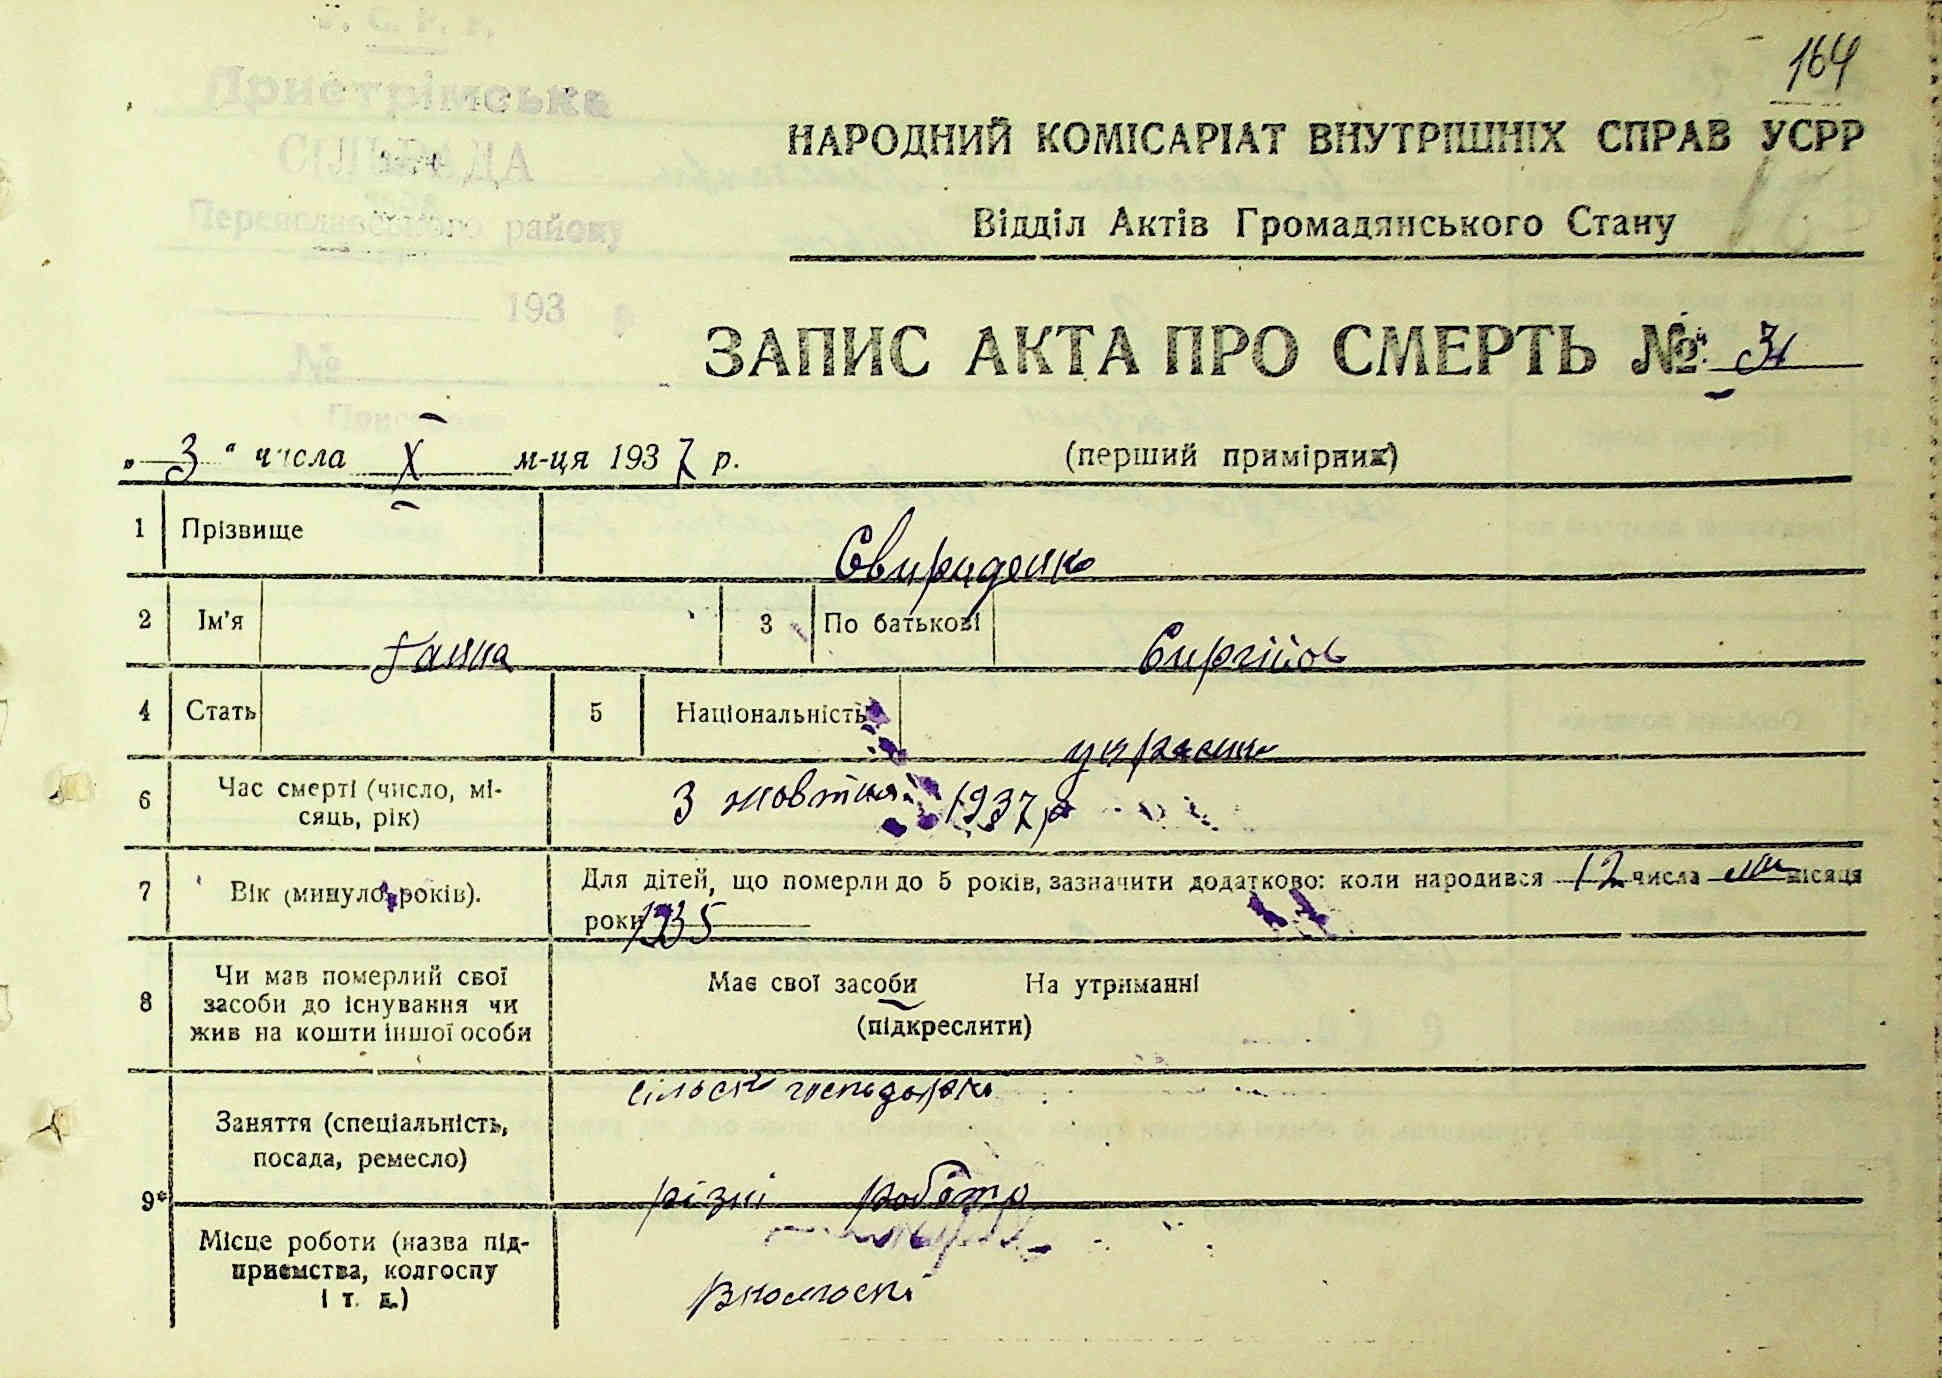 У. С. Р. Р.
Пристрімська
СІЛЬРАДА
Переяславського району
193 р
№
164
НАРОДНИЙ КОМІСАРІАТ ВНУТРІШНІХ СПРАВ УСРР
Відділ Актів Громадянського Стану
ЗАПИС АКТА ПРО СМЕРТЬ №
„ 3 " числа X м-ця 1937 р. (перший примірник)
1 Прізвище Свириденко
2 Ім'я Ганна 3 По батькові
4 Стать 5 Національність украєнка
6 Час смерті (число, мі-
сяць, рік) 3 жовтня 1937 р
7 Вік (минуло років). Для дітей, що померли до 5 років, зазначити додатково: коли народився 12 числа місяця
роки 1935
8 Чи мав померлий свої
засоби до існування чи
жив на кошти іншої особи
Має свої засоби На утриманні
(підкреслити)
9* Заняття (спеціальність,
посада, ремесло)
різні
Місце роботи (назва під-
приємства, колгоспу
і т. д.)
вколгоспі